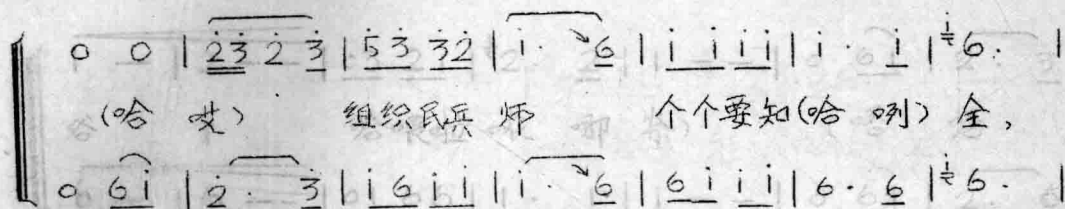 0 0 | 2̇3̇ 2̇ 3̇ | 5̇ 3̇ 3̇2̇ | i· ↘6 | i i i i | i · i | i 6· |
(哈 哎) 组织民兵 师 个个要知(哈 咧) 全,
0 6 i | 2̇ · 3̇ | i 6 i i | i· ↘6 | 6 i i i | 6 · 6 | i 6· |